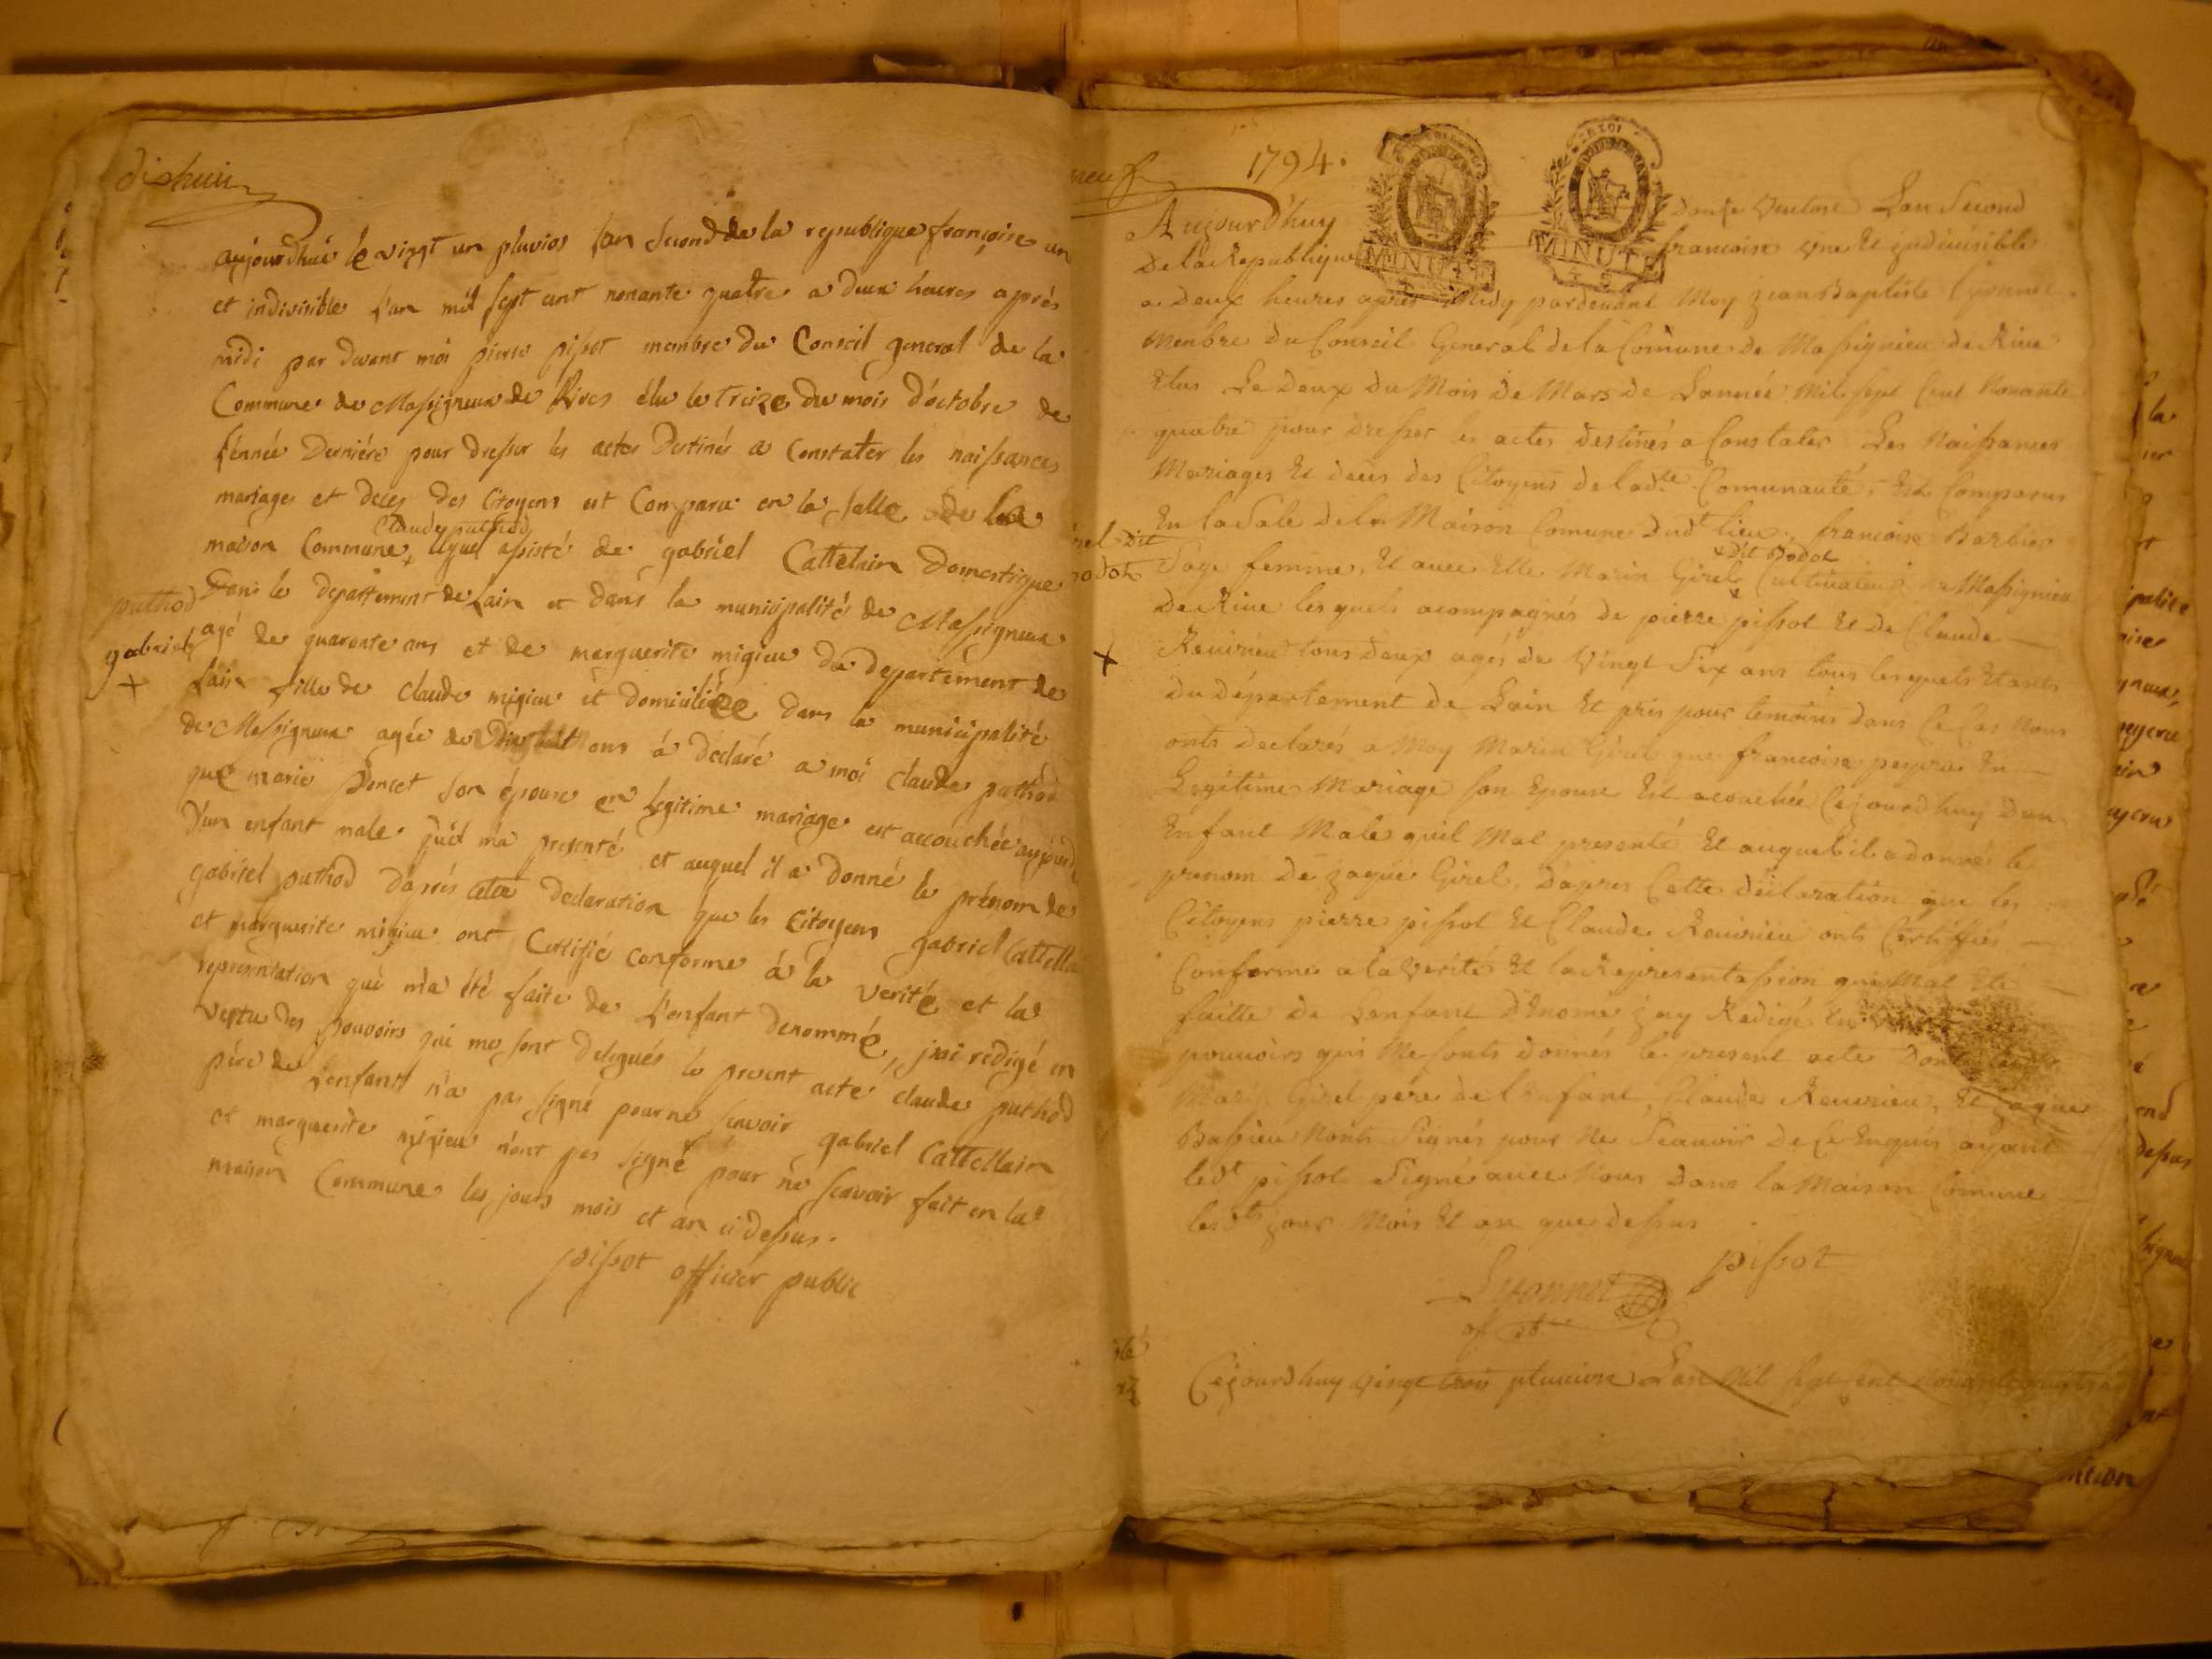 dixhuit
aujourdhui le vingt un pluvios lan second de la republique françoise un
et indivisible l'an mil sept cent nonante quatre a deux heures aprés
midi par devant moi pierre pissot membre du Conseil general de la
Commune de Massigneux de Rives élu le treize du mois d'octobre de
l'énnée derniére pour dresser les actes destinés a constater les naissances
mariages et deces des citoyens est comparu en la salle de la
Claude puthod
maison Commune, lequel assisté de gabriel Cattelain domestique
dans le departement de lain et dans la municipalité de Massigneux
puthod
gabriel
+
agé de quarante ans et de marguerite migieu du departement de
lain fille de claude migieu et domiciliéee dans la municipalité
de Massigneux agée de dix huit ans á déclaré a moi claude puthod
que marie poncet son épouse en legitime mariage est accouchée aujourd
d'un enfant male qu'il ma presenté et auquel il a donné le prénom de
gabriel puthod d'aprés cette declaration que les citoyens gabriel Cattella
et marguerite migieu ont certifié conforme á la verité et la
representation qui m'a été faite de l'enfant denommé, j'ai redigé en
vertu des pouvoirs qui me sont delegués le present acte claude puthod
pére de l'enfant n'a pas signé pour ne scavoir gabriel Cattellain
et marguerite migieu n'ont pas signé pour ne scavoir fait en la
maison Commune les jours mois et an ci dessus.
pissot officier public
neuf
1794.
MINUTE
MINUTE
Aujourd'huy douse ventose Lan Second
De la Republique francoise une et indivisible
a deux heures apres Midy pardevant Moy jean Baptiste Lyonnet
Menbre du Conseil General de la Comune de Massignieu de Rive
Elus Le Deux du Mois de Mars de Lannée Mil sept Cent Nonante
quatre pour dresser les actes destinés a Constater Les Naissances
Mariages Et deces des Citoyens de ladte Comunauté, Est Comparus
En la Sale de la Maison Comune dudt lieu, francoise Barbier
dit Dodot
Sage femme, Et avec Elle Marin Girel Cultivateur de Massignieu
De Rive lesquels acompagnés de pierre pissot Et de Claude
+
Reuvrieu tous deux agés de Vingt Six ans tous lesquels Etants
du département de Lain Et pris pour temoins dans Ce Cas Nous
onts declarés a Moy Marin Girel que francoise peyra En
Legitime Mariage son Epouse Est acouchée Cejourdhuy Dun
Enfant Male quil Mat presenté Et auquel il a donné le
prenom De jaque Girel, dapres Cette déclaration que les
Citoyens pierre pissot Et Claude Reuvrieu onts Certiffiés
Conforme a la verité Et la Representassion qui Mat Eté
faitte de Lenfant dénomé jay Redigé En
pouvoirs qui Me sonts donnés le present acte Dont
Marin Girel pére de lenfant, Claude Reuvrieu, Et jaque
Bassieu Nonts Signés pour Ne Scavoir De Ce Enquis ayant
ledt pissot Signé avec Nous Dans la Maison Comune
lesdts jour Mois Et an que dessus
pissot
Lyonnet
of
Cejourdhuy vingt trois pluviose Lan Mil sept Cent Nonante quatre